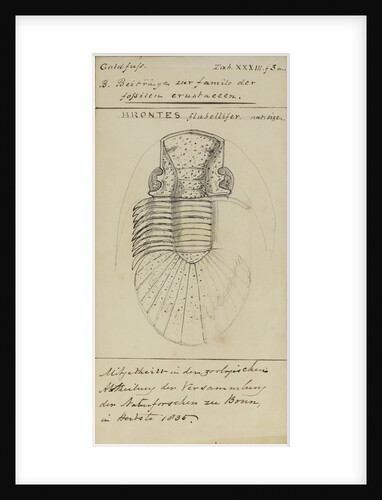 Goldfuss. Tab. XXXIII. f 3 a.
B. Beiträge zur famile der
fossilen crustaceen.
BRONTES flabellifer. nat. grösse.
Mitgetheilt in dem zoologischen
Abtheilung der Versammlung
der Naturforschen zu Bonn,
in Herbste 1835.